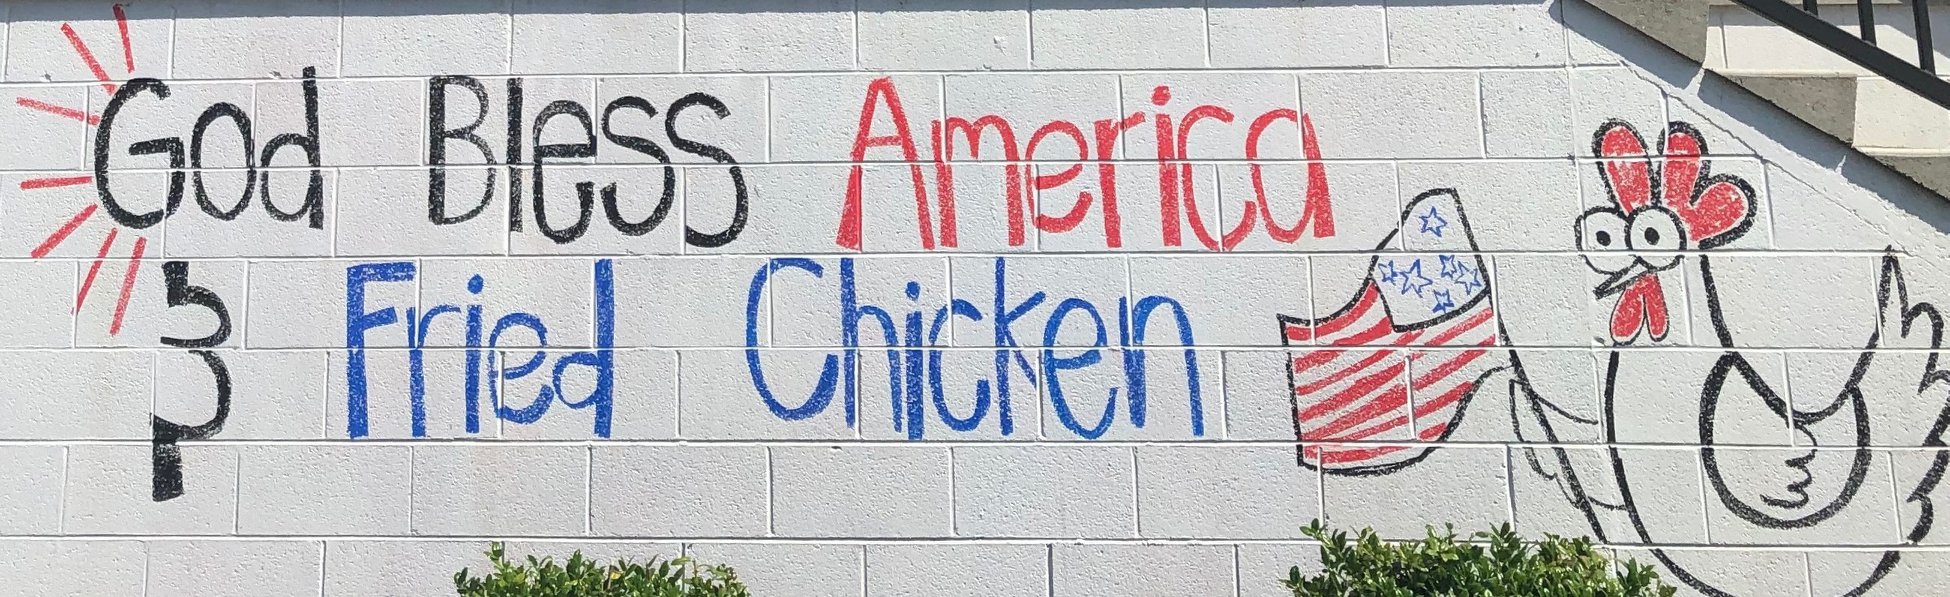 God Bless America
& Fried Chicken